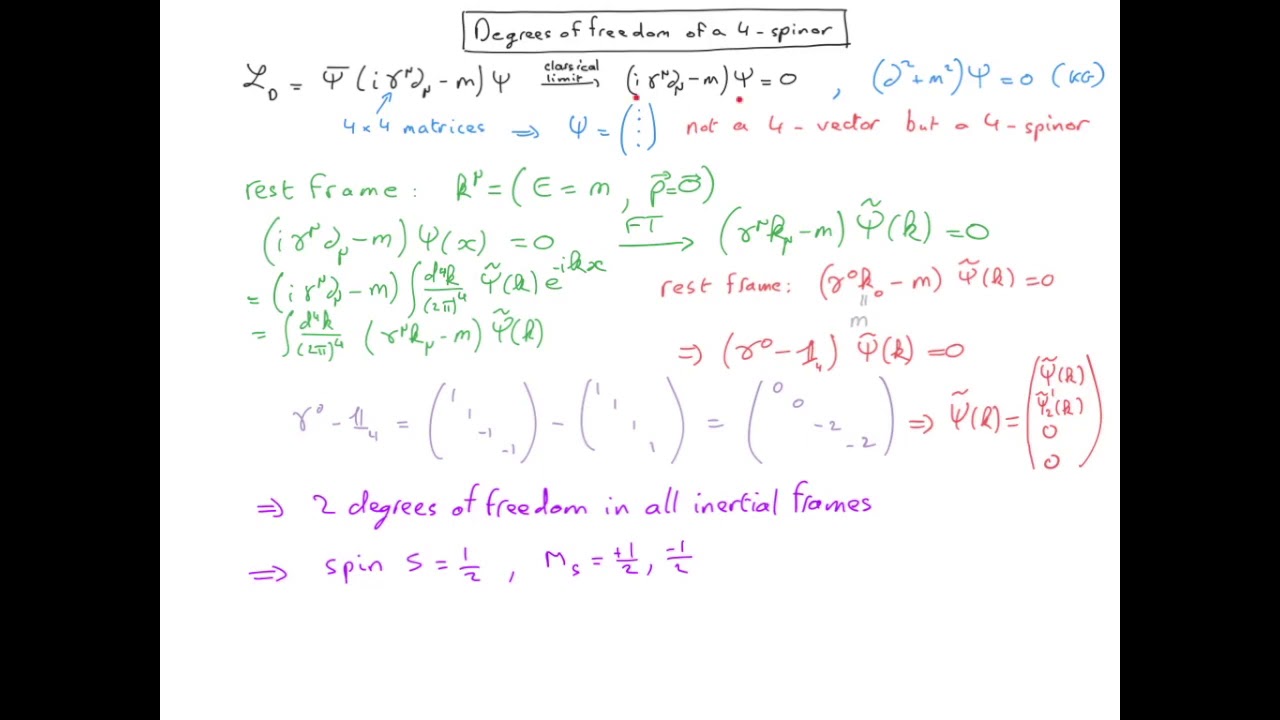 Degrees of freedom of a 4-spinor
ℒ_D = Ψ̄ (i γ^μ ∂_μ - m) Ψ —classical limit→ (i γ^μ ∂_μ - m) Ψ = 0 , (∂² + m²) Ψ = 0 (KG)
4×4 matrices ⇒ Ψ = (⋮) not a 4-vector but a 4-spinor
rest frame: k^μ = (E = m, p⃗ = 0⃗)
(i γ^μ ∂_μ - m) Ψ(x) = 0 —FT→ (γ^μ k_μ - m) Ψ̃(k) = 0
= (i γ^μ ∂_μ - m) ∫ d⁴k/(2π)⁴ Ψ̃(k) e^{-ikx}
rest frame: (γ⁰ k₀ - m) Ψ̃(k) = 0
= ∫ d⁴k/(2π)⁴ (γ^μ k_μ - m) Ψ̃(k)
॥
m
⇒ (γ⁰ - 𝟙₄) Ψ̃(k) = 0
γ⁰ - 𝟙₄ = (1 1 -1 -1) - (1 1 1 1) = (0 0 -2 -2) ⇒ Ψ̃(k) = (Ψ̃₁(k) Ψ̃₂(k) 0 0)
⇒ 2 degrees of freedom in all inertial frames
⇒ spin S = 1/2 , M_s = +1/2, -1/2